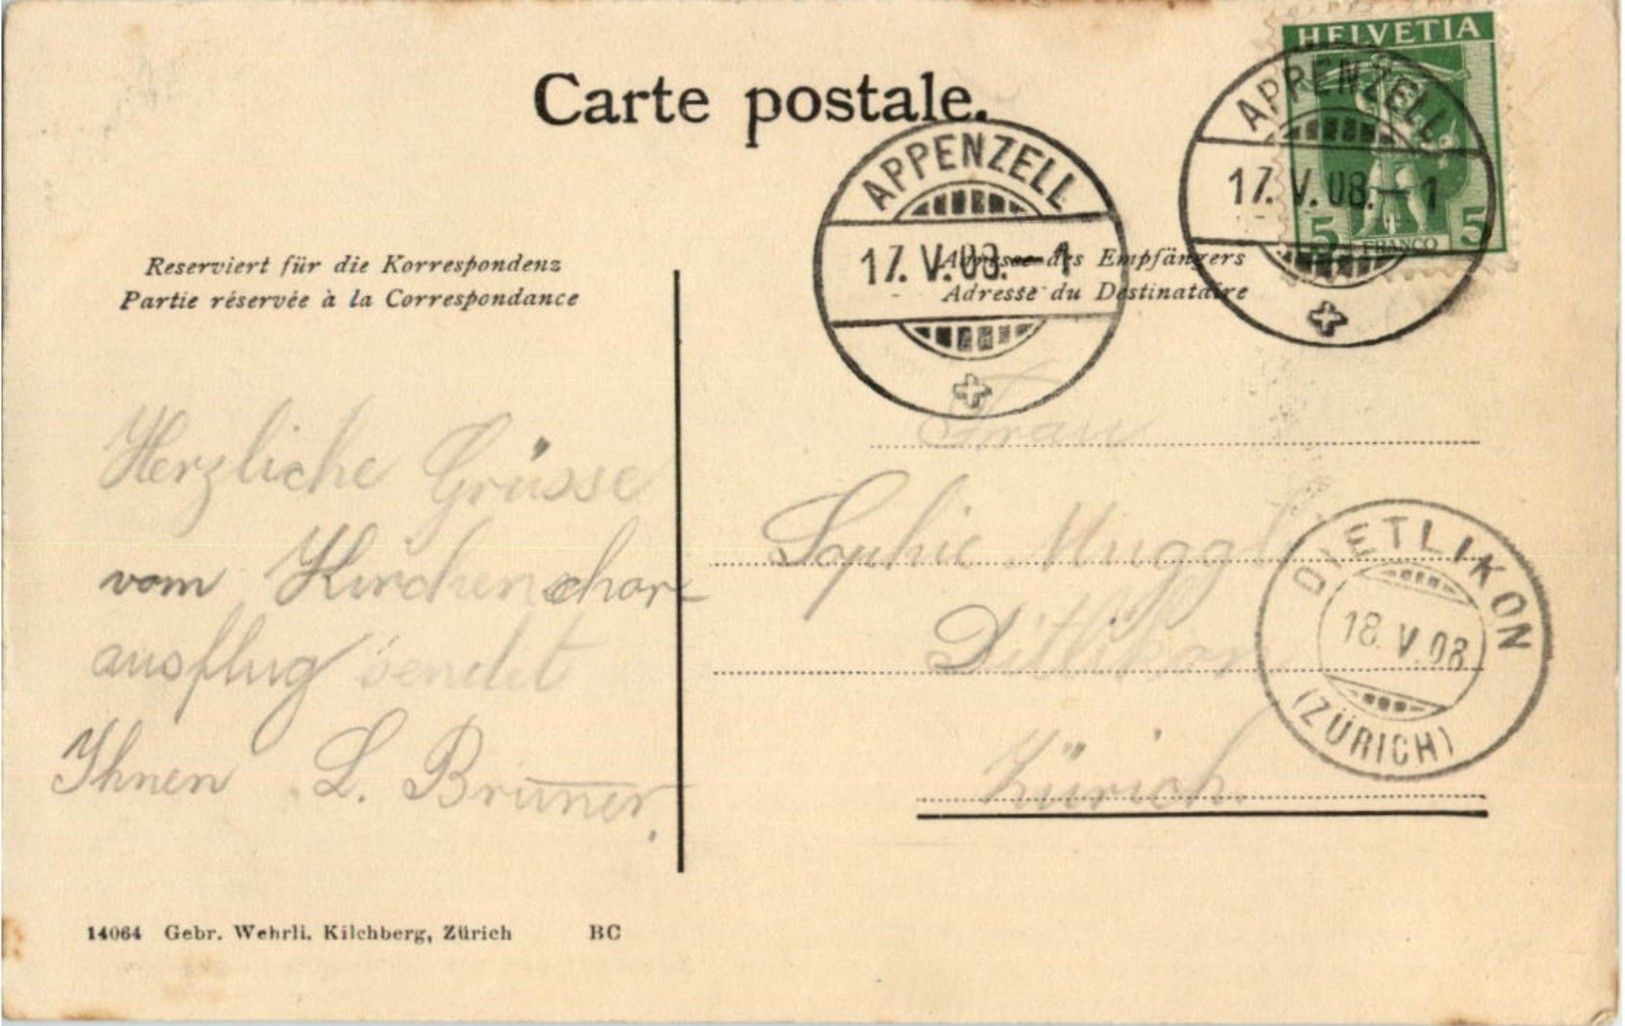 Carte postale.
HELVETIA
5 FRANCO 5
APPENZELL
17. V. 08. — 1
APPENZELL
17. V. 08. — 1
Reserviert für die Korrespondenz
Partie réservée à la Correspondance
Adresse des Empfängers
Adresse du Destinataire
Herzliche Grüsse
vom Kirchenchor-
ausflug sendet
Ihnen L. Brunner.
Frau
Sophie Muggli
Ditlikon
Zürich.
DIETLIKON
18. V. 08
(ZÜRICH)
14064 Gebr. Wehrli, Kilchberg, Zürich BC